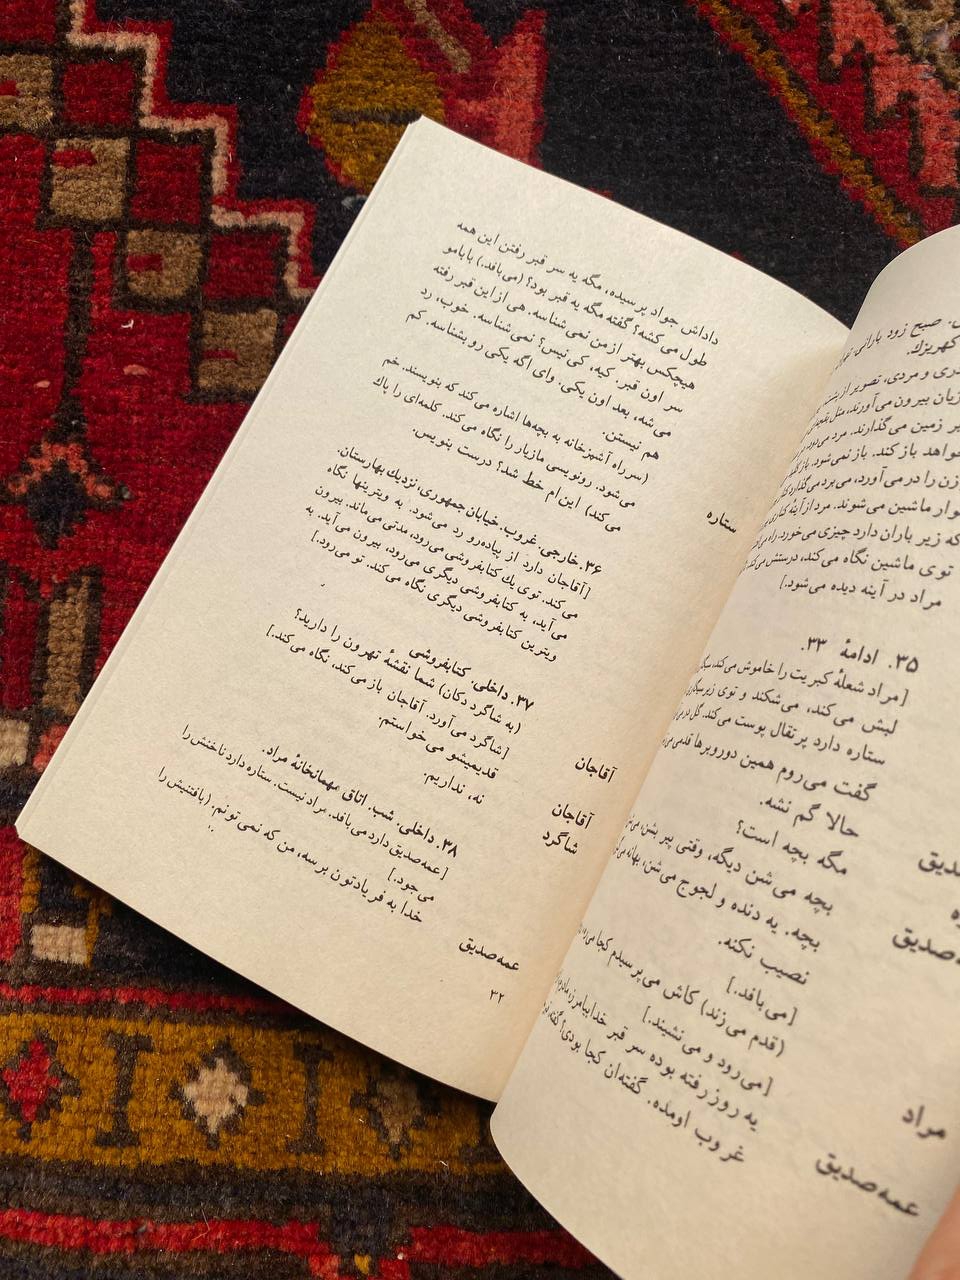 ن. صبح زود بارانی.
کهریزك.
ری و مردی، تصویر از پشت
زبان بیرون می‌آورند، مثل
یر زمین می‌گذارند. مرد می‌رود
خواهد باز کند. باز نمی‌شود.
زن را در می‌آورد، می‌برد می‌گذارد
وار ماشین می‌شوند. مرد از آینه
که زیر باران دارد چیزی می‌خورد.
توی ماشین نگاه می‌کند، درستش می‌کند.
مراد در آینه دیده می‌شود.]
۳۵. ادامهٔ ۳۳.
[مراد شعلهٔ کبریت را خاموش می‌کند،
لبش می‌کند، می‌شکند و توی زیرسیگاری
ستاره دارد پرتقال پوست می‌کند.
گفت می‌روم همین دوروبرها قدمی
حالا گم نشه.
مگه بچه است؟
صدیق بچه می‌شن دیگه، وقتی پیر بشن،
بچه. یه دنده و لجوج می‌شن، بهانه
عمه‌صدیق نصیب نکنه.
[می‌بافد.]
(قدم می‌زند) کاش می‌پرسیدم کجا
[می‌رود و می‌نشیند.]
مراد یه روز رفته بوده سر قبر خدابیامرز
عمه‌صدیق غروب اومده. گفته‌ان کجا بودی؟ گفته،
داداش جواد پرسیده، مگه یه سر قبر رفتن این همه
طول می‌کشه؟ گفته مگه یه قبر بود؟ (می‌بافد.) بابامو
هیچکس بهتر از من نمی‌شناسه. هی از این قبر رفته
سر اون قبر. کیه، کی نیس؟ نمی‌شناسه. خوب، رد
می‌شه، بعد اون یکی. وای اگه یکی رو بشناسه. کم
هم نیستن.
ستاره (سر راه آشپزخانه به بچه‌ها اشاره می‌کند که بنویسند. خم
می‌شود. رونویسی مازیار را نگاه می‌کند. کلمه‌ای را پاك
می‌کند) این‌ام خط شد؟ درست بنویس.
۳۶. خارجی. غروب. خیابان جمهوری، نزدیك بهارستان.
[آقاجان دارد از پیاده‌رو رد می‌شود. به ویترینها نگاه
می‌کند. توی یك کتابفروشی می‌رود، مدتی می‌ماند. بیرون
می‌آید، به کتابفروشی دیگری می‌رود، بیرون می‌آید. به
ویترین کتابفروشی دیگری نگاه می‌کند. تو می‌رود.]
۳۷. داخلی. کتابفروشی
آقاجان (به شاگرد دکان) شما نقشهٔ تهرون را دارید؟
[شاگرد می‌آورد. آقاجان باز می‌کند، نگاه می‌کند.]
آقاجان قدیمیشو می‌خواستم.
شاگرد نه، نداریم.
۳۸. داخلی. شب. اتاق مهمانخانهٔ مراد.
[عمه‌صدیق دارد می‌بافد. مراد نیست. ستاره دارد ناخنش را
می‌جود.]
عمه‌صدیق خدا به فریادتون برسه، من که نمی‌تونم. (بافتنیش را
۳۲